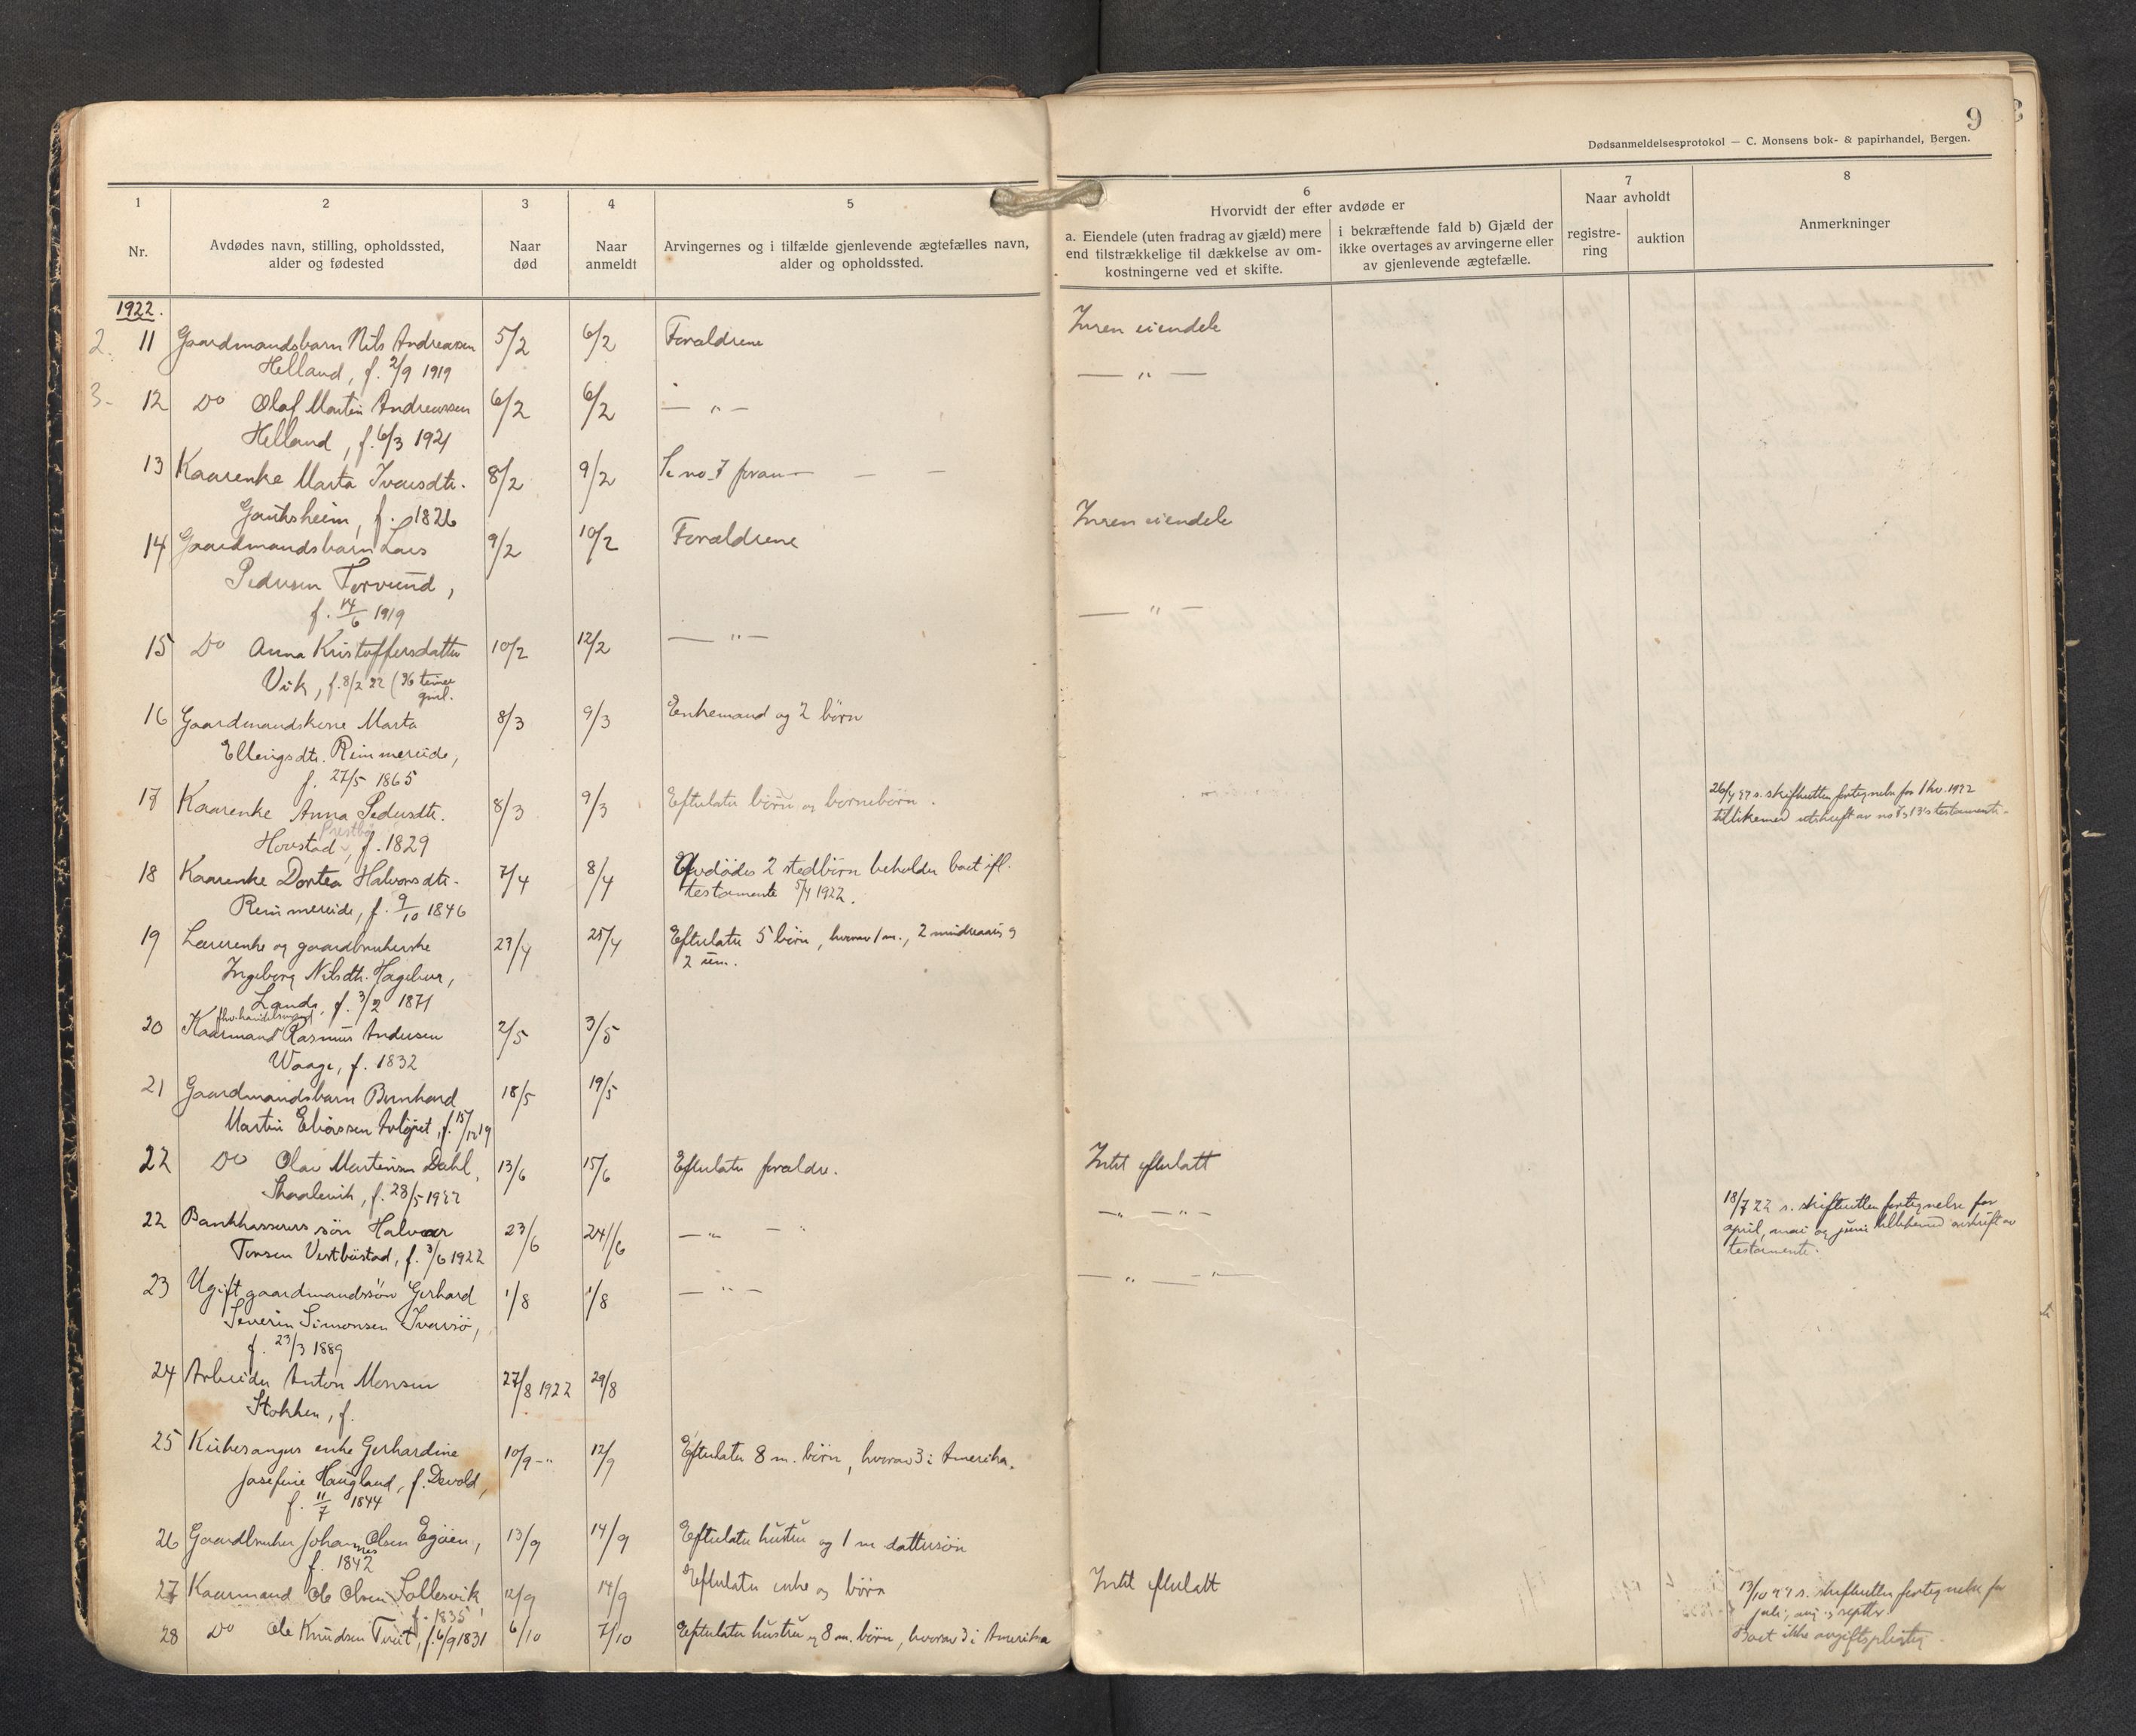 9
Dødsanmeldelsesprotokol — C. Monsens bok- & papirhandel, Bergen.
1
2
3
4
5
6
7
8
Nr.
Avdødes navn, stilling, opholdssted,
alder og fødested
Naar
død
Naar
anmeldt
Arvingernes og i tilfælde gjenlevende ægtefælles navn,
alder og opholdssted.
Hvorvidt der efter avdøde er
a. Eiendele (uten fradrag av gjæld) mere
end tilstrækkelige til dækkelse av om-
kostningerne ved et skifte.
i bekræftende fald b) Gjæld der
ikke overtages av arvingerne eller
av gjenlevende ægtefælle.
Naar avholdt
registre-
ring
auktion
Anmerkninger
1922.
2. 11 Gaardmandsbarn Nils Andreassen 5/2 6/2 Forældrene Ingen eiendele
Helland, f. 2/9 1919
3- 12 Do Olaf Martin Andreassen 6/2 6/2 — " — — " —
Helland, f. 6/3 1921
13 Kaarenke Marta Ivarsdtr. 8/2 9/2 Se no 7 foran — — —
f. 1826
14 Gaardmandsbarn Lars 9/2 10/2 Forældrene Ingen eiendele
Pedersen Torvund,
f. 14/6 1919
15 Do Anna Kristoffersdatter 10/2 12/2 — " — — " —
Vik, f. 8/2 22 (36 timer
gml.
16 Gaardmandskone Marta 8/3 9/3 Enkemand og 2 börn
Ellingsdtr. Rimmereide,
f. 27/5 1865
17 Kaarenke Anna Pedersdtr. 8/3 9/3 Efterlater börn og børnebörn.
Prestbö
Hovstad, f. 1829
26/4 22 s. skifteretten fortegnelse for 1 kv. 1922
tillikemed utskrift av no 7 og 13's testamente.
18 Kaarenke Dortea Halvorsdtr. 7/4 8/4 Avdödes 2 stedbörn beholder boet ifl.
Rimmereide, f. 9/10 1846 testamente 5/4 1922.
19 Lærerenke og gaardbrukerske 23/4 25/4 Efterlater 5 börn, hvorav 1 m., 2 mindreaarig og
Ingeborg Nilsdtr. Hagebøe, 2 um.
Lande, f. 3/2 1871
fhv. handelsmand
20 Kaarmand Rasmus Andersen 2/5 3/5
Waage, f. 1832
21 Gaardmandsbarn Bernhard 18/5 19/5
Martin Eliassen f. 15/12 19
22 Do Olav Martinsen Dahl, 13/6 15/6 Efterlater forældre. Intet efterlatt
Skaalevik, f. 28/5 1922
22 Bankkasserers sön Halvor 23/6 24/6 — " — " — " — " —
Tonsen Vestböstad, f. 3/6 1922
18/7 22 s. skifteretten fortegnelse for
april, mai og juni tillikemed avskrift av
testamente.
23 Ugift gaardmandssön Gerhard 1/8 1/8 — " — — " — " —
Severin Simonsen Ivarsö,
f. 23/3 1889
24 Arbeider Anton Monsen 27/8 1922 29/8
Stokken, f.
25 Kirkesanger enke Gerhardine 10/9 -"- 12/9 Efterlater 8 m. börn, hvorav 3 i Amerika.
Josefine Haugland, f. Devold,
f. 11/7 1844
26 Gaardbruker Johannes Olsen Egöien, 13/9 14/9 Efterlater hustru og 1 m dattersön
f. 1842
27 Kaarmand Ole Olsen Sollesvik, 12/9 14/9 Efterlater enke og börn Intet efterlatt
f. 1835
28 Do Ole Knudsen Tveit, f. 6/9 1831 6/10 7/10 Efterlater hustru og 8 m. börn, hvorav 3 i Amerika
13/10 22 s. skifteretten fortegnelse for
juli, aug. og septbr.
Boet ikke avgiftspligtig.